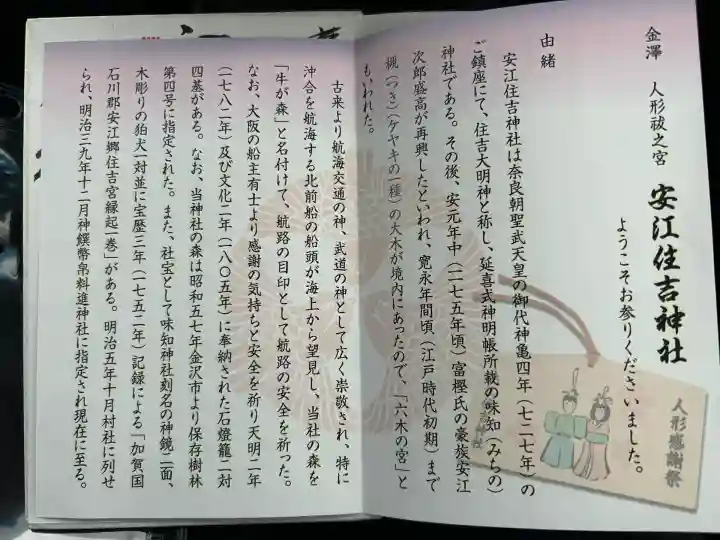 金澤　人形祓之宮　安江住吉神社
ようこそお参りくださいました。
由緒
安江住吉神社は奈良朝聖武天皇の御代神亀四年（七二七年）の
ご鎮座にて、住吉大明神と称し、延喜式神明帳所載の味知（みちの）
神社である。その後、安元年中（一一七五年頃）富樫氏の豪族安江
次郎盛高が再興したといわれ、寛永年間頃（江戸時代初期）まで
槻（つき）（ケヤキの一種）の大木が境内にあったので、「六木の宮」と
も、いわれた。
古来より航海交通の神、武道の神として広く崇敬され、特に
沖合を航海する北前船の船頭が海上から望見し、当社の森を
「牛が森」と名付けて、航路の目印として航路の安全を祈った。
なお、大阪の船主有士より感謝の気持ちと安全を祈り天明二年
（一七八二年）及び文化二年（一八〇五年）に奉納された石燈籠二対
四基がある。なお、当神社の森は昭和五七年金沢市より保存樹林
第四号に指定された。また、社宝として味知神社刻名の神鏡二面、
木彫りの狛犬一対並に宝歴三年（一七五二年）記録による「加賀国
石川郡安江郷住吉宮縁起一巻」がある。明治五年十月村社に列せ
られ、明治三九年十二月神饌幣帛料進神社に指定され現在に至る。
人形感謝祭